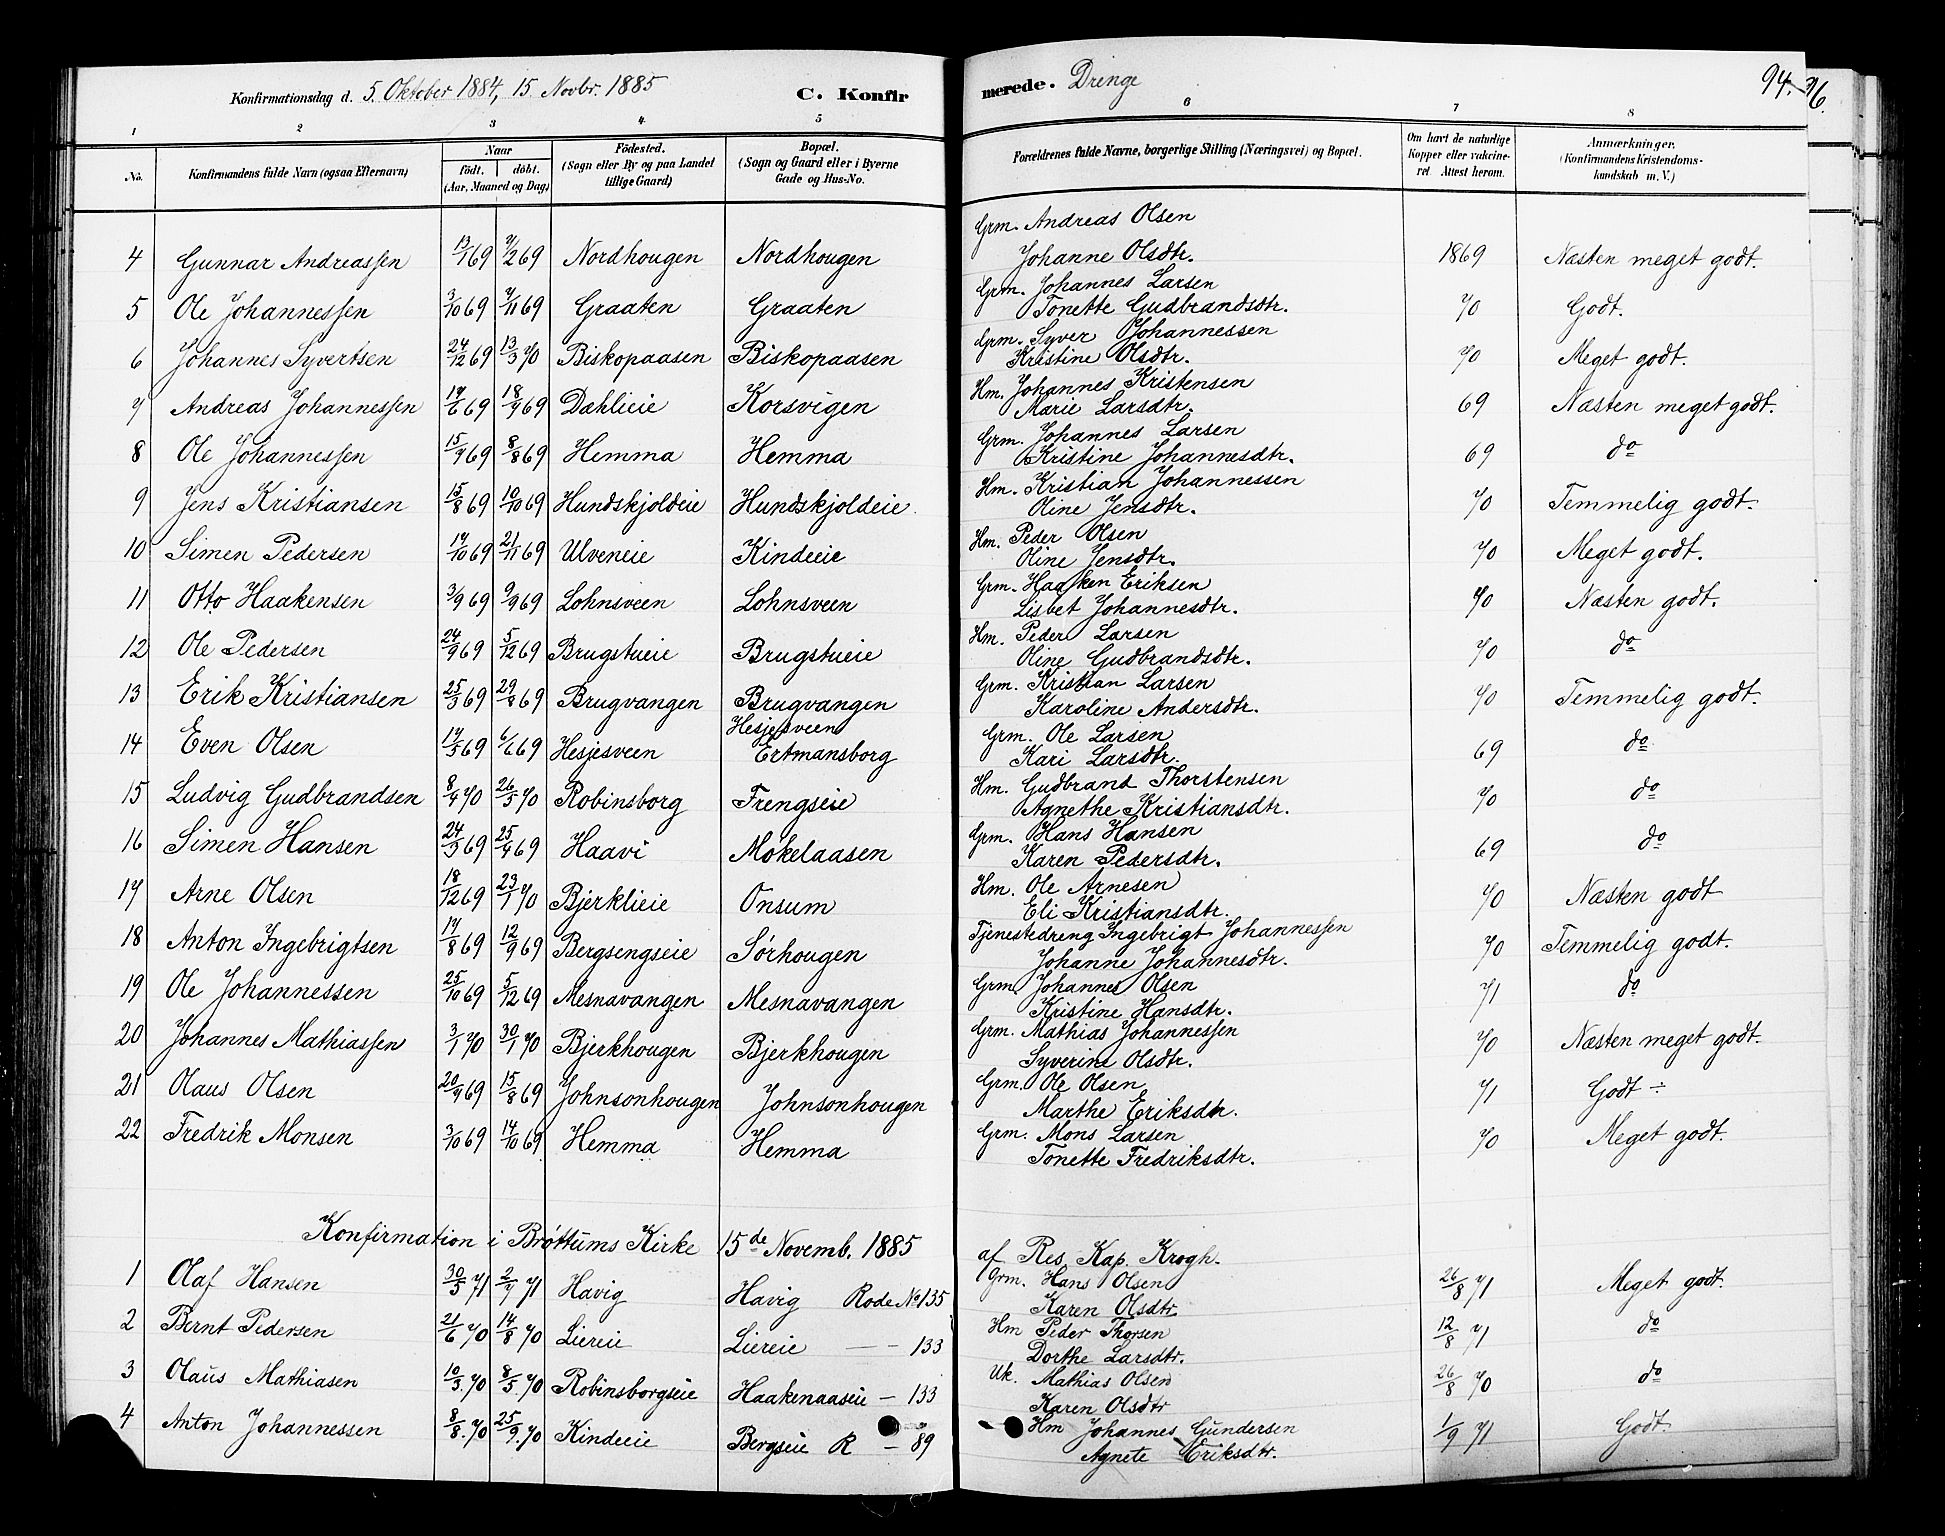 Konfirmationsdag d. 5. Oktober 1884, 15 Novbr. 1885 C. Konfir merede. Drenge 94.
1 2 3 4. 5 6 7 8
No. Konfirmandens fulde Navn (ogsaa Efternavn) Naar født. døbt. (Aar, Maaned og Dag) Fødested. (Sogn eller By og paa Landet tillige Gaard) Bopæl. (Sogn og Gaard eller i Byerne Gade og Hus-No. Forældrenes fulde Navne, borgerlige Stilling (Næringsvei) og Bopæl. Om havt de naturlige Kopper eller vakcineret. Attest herom. Anmærkninger. (Konfirmandens Kristendomskundskab m. V.)
Grm. Andreas Olsen
4 Gunnar Andreassen 13/1 69 7/2 69 Nordhougen Nordhougen Johanne Olsdtr. 1869 Næsten meget godt.
Grm. Johannes Larsen
5 Ole Johannessen 3/10 69 7/11 69 Graaten Graaten Tonette Gudbrandsdtr. 70 Godt.
Grm. Syver Johannessen
6 Johannes Syvertsen 24/12 69 13/3 70 Biskopaasen Biskopaasen Kristine Olsdtr. 70 Meget godt.
Hm. Johannes Kristensen
7 Andreas Johannessen 17/6 69 18/7 69 Dahlieie Korsvigen Marie Larsdtr. 69 Næsten meget godt.
Grm. Johannes Larsen
8 Ole Johannessen 15/7 69 8/8 69 Hemma Hemma Kristine Johannesdtr. 69 do
Hm. Kristian Johannessen
9 Jens Kristiansen 15/8 69 10/10 69 Hundskjoldeie Hundskjoldeie. Oline Jensdtr. 70 Temmelig godt.
Hm. Peder Olsen
10 Simen Pedersen 17/10 69 21/11 69 Ulveneie Kindeeie Oline Jensdtr. 70 Meget godt.
Grm. Haaken Eriksen
11 Otto Haakensen 3/9 69 9/9 69 Lohnsveen Lohnsveen Lisbet Johannesdtr. 70 Næsten godt.
Hm. Peder Larsen
12 Ole Pedersen 24/9 69 5/12 69 Brugstueie Brugstueie Oline Gudbrandsdtr. 70 do
Grm. Kristian Larsen
13 Erik Kristiansen 25/3 69 29/8 69 Brugvangen Brugvangen Karoline Andersdtr. 70 Temmelig godt.
Hesjesveen Grm. Ole Larsen
14 Even Olsen 17/5 69 6/6 69 Hesjesveen Ertmansborg Kari Larsdtr. 69 do
Hm. Gudbrand Thorstensen
15 Ludvig Gudbrandsen 8/4 70 26/5 70 Robinsborg Frengseie Agnethe Kristiansdtr. 70 do
Grm. Hans Hansen
16 Simen Hansen 24/3 69 25/4 69 Haavi Mokelaasen Karen Pedersdtr. 69 do
Hm. Ole Arnesen
17 Arne Olsen 18/12 69 23/1 70 Bjerklieie Onsum Eli Kristiansdtr. 70 Næsten godt
Tjenestedreng Ingebrigt Johannessen
18 Anton Ingebrigtsen 17/8 69 12/9 69 Bergsengseie Sørhougen Johanne Johannesdtr. 70 Temmelig godt.
Grm. Johannes Olsen
19 Ole Johannessen 25/10 69 5/12 69 Mesnavangen Mesnavangen Kristine Hansdtr. 71 do
Grm. Mathias Johannessen
20 Johannes Mathiassen 3/1 70 30/1 70 Bjerkhougen Bjerkhougen Syverine Olsdtr. 70 Næsten meget godt.
Grm. Ole Olsen
21 Olaus Olsen 20/9 69 15/8 69 Johnsonhougen Johnsonhougen Marthe Eriksdtr. 71 Godt ÷
Grm. Mons Larsen
22 Fredrik Monsen 3/10 69 14/10 69 Hemma Hemma Tonette Fredriksdtr. 70 Meget godt.
Konfirmation i Brøttums Kirke 15de Novemb. 1885 af Res. Kap. Krogh.
1 Olaf Hansen 30/5 71 2/7 71 Havig Havig Rode No 135 Grm. Hans Olsen 26/8 71 Meget godt.
Karen Olsdtr
2 Bernt Pedersen 21/6 70 14/8 70 Liereie Liereie — - 133 Hm Peder Thorsen 12/8 71 do
Dorthe Larsdtr.
3 Olaus Mathiasen 10/3. 70 8/5. 70 Robinsborgseie Haakenaaseie — 133 Uk. Mathias Olsen 26/8 70 do
Karen Olsdtr
4 Anton Johannessen 8/8. 70 25/9. 70 Kindeeie Bergseie R — 89 Hm Johannes Gundersen 1/9 71 Godt.
Agnete Eriksdtr.